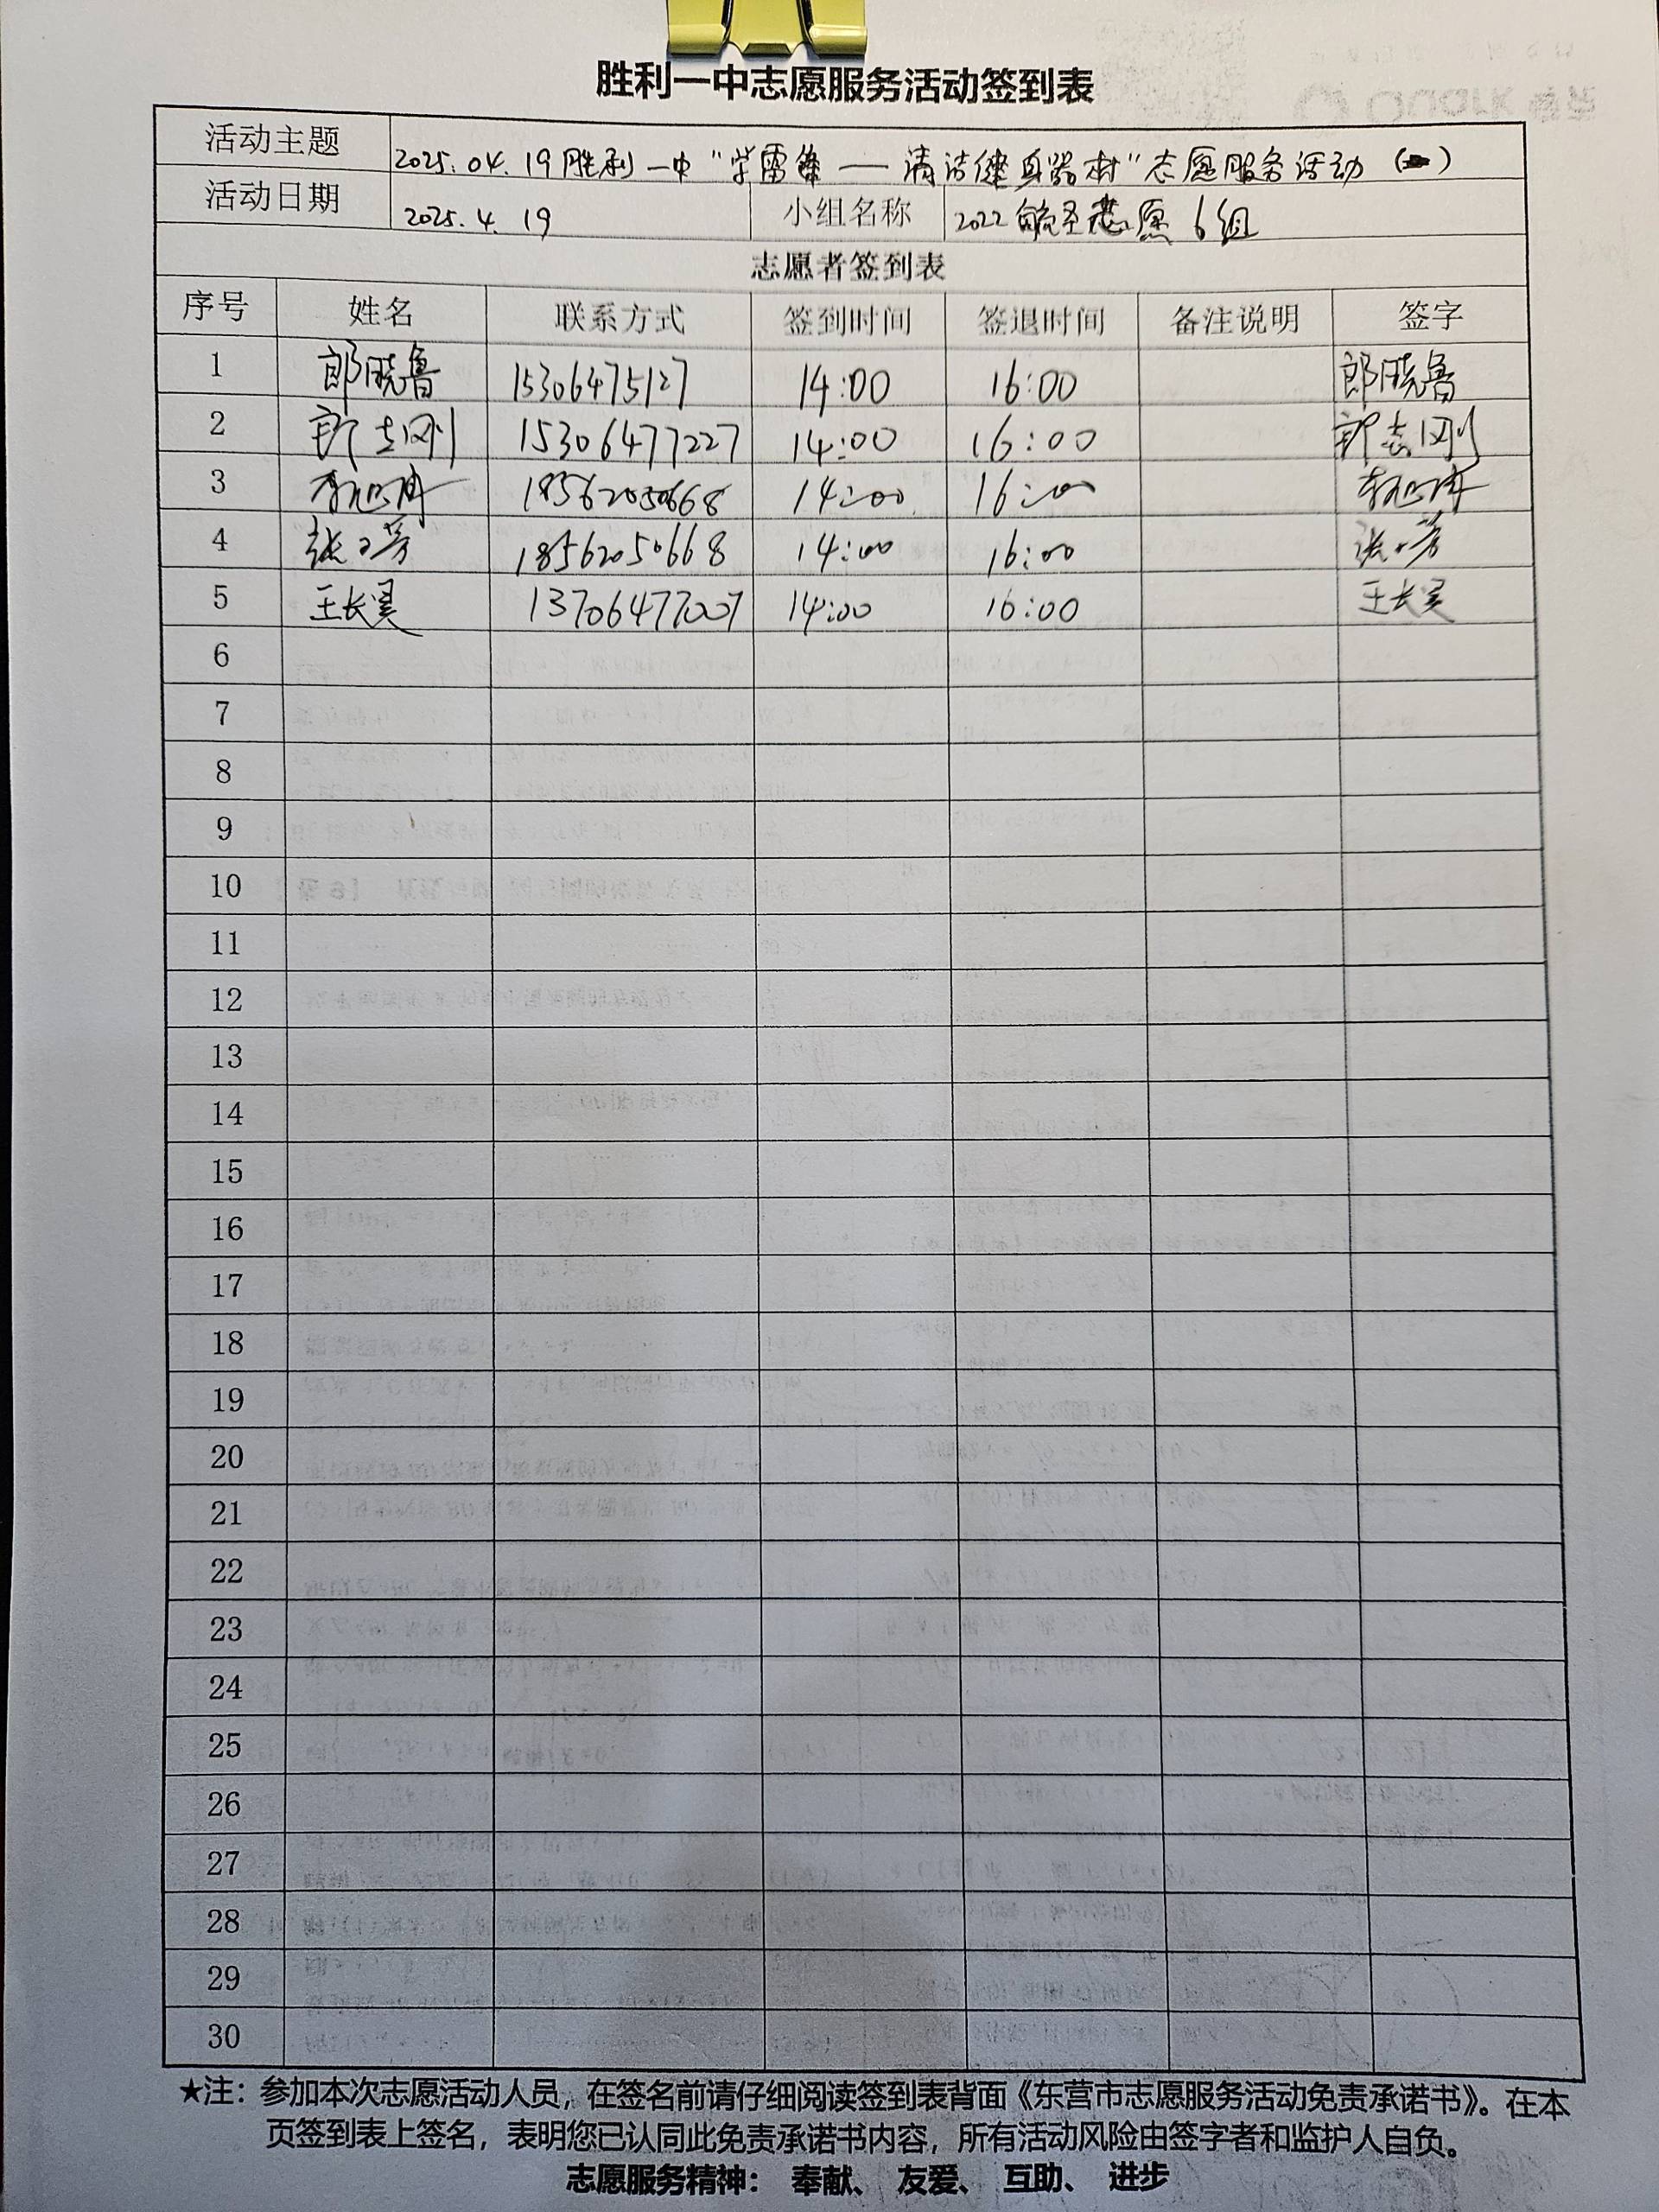 胜利一中志愿服务活动签到表
活动主题 2025.04.19胜利一中“学雷锋——清洁健身器材”志愿服务活动（一）
活动日期 2025.4.19 小组名称 2022 志愿6组
志愿者签到表
序号 姓名 联系方式 签到时间 签退时间 备注说明 签字
1 郎晓鲁 15306475127 14:00 16:00 郎晓鲁
2 志刚 15306477227 14:00 16:00 志刚
3 18562050668 14:00 16:00
4 张 芳 18562050668 14:00 16:00 张 芳
5 王长昊 13706477007 14:00 16:00 王长昊
6
7
8
9
10
11
12
13
14
15
16
17
18
19
20
21
22
23
24
25
26
27
28
29
30
★注：参加本次志愿活动人员，在签名前请仔细阅读签到表背面《东营市志愿服务活动免责承诺书》。在本
页签到表上签名，表明您已认同此免责承诺书内容，所有活动风险由签字者和监护人自负。
志愿服务精神： 奉献、 友爱、 互助、 进步